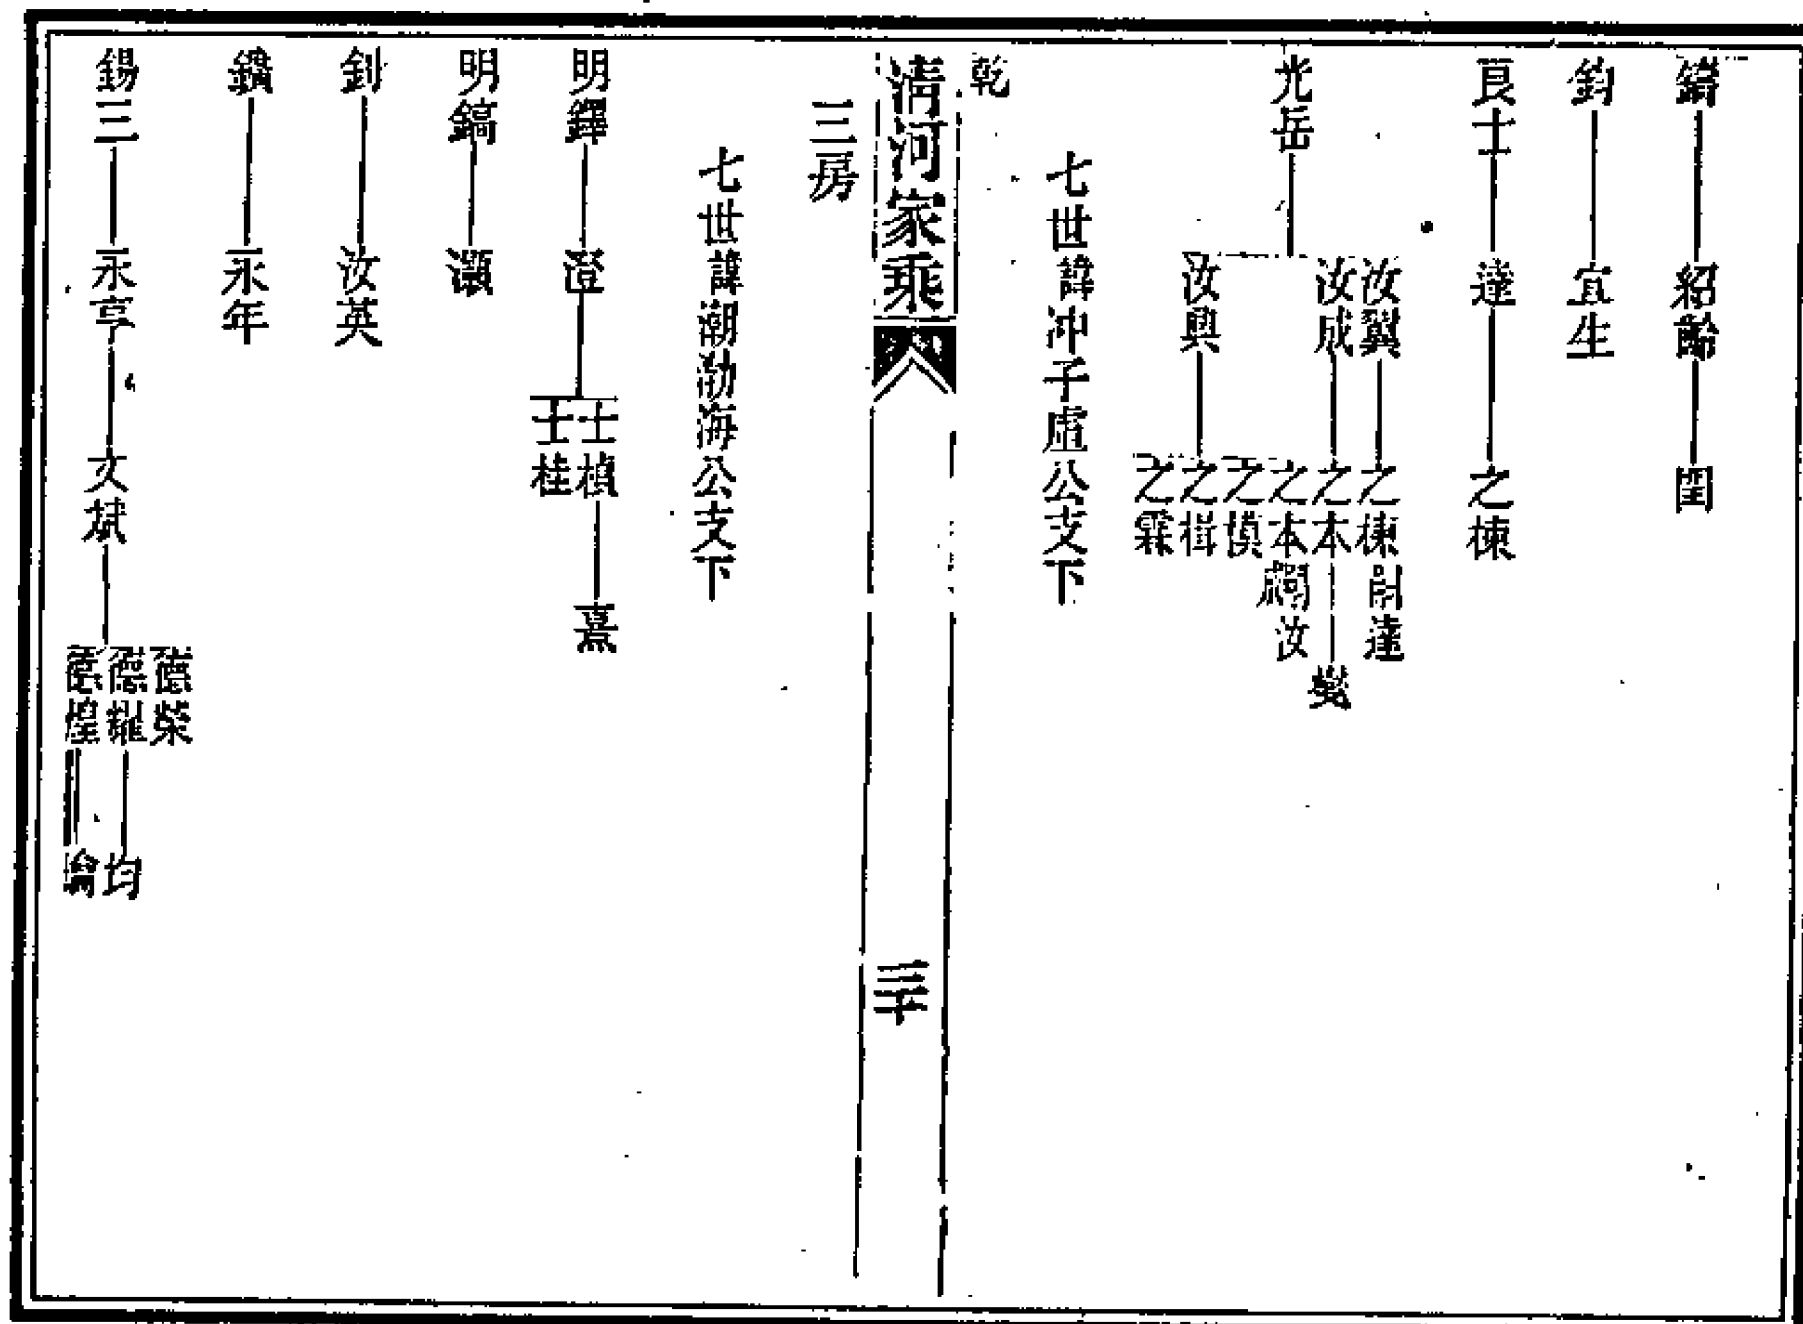 紹齡 閏
鈞 宜生
良士 達 之棟
光岳
汝翼 之棟嗣達
汝成 之本 燮
之本嗣汝
之模
汝興 之楫
之霖
七世諱冲子虛公支下
乾
清河家乘
三十
三房
七世諱潮渤海公支下
明鐸 澄
壬楨 熹
壬桂
明鎬 灝
釗 汝英
鑛 永年
錫三 永亨 文斌
德榮
德耀 均
德煌